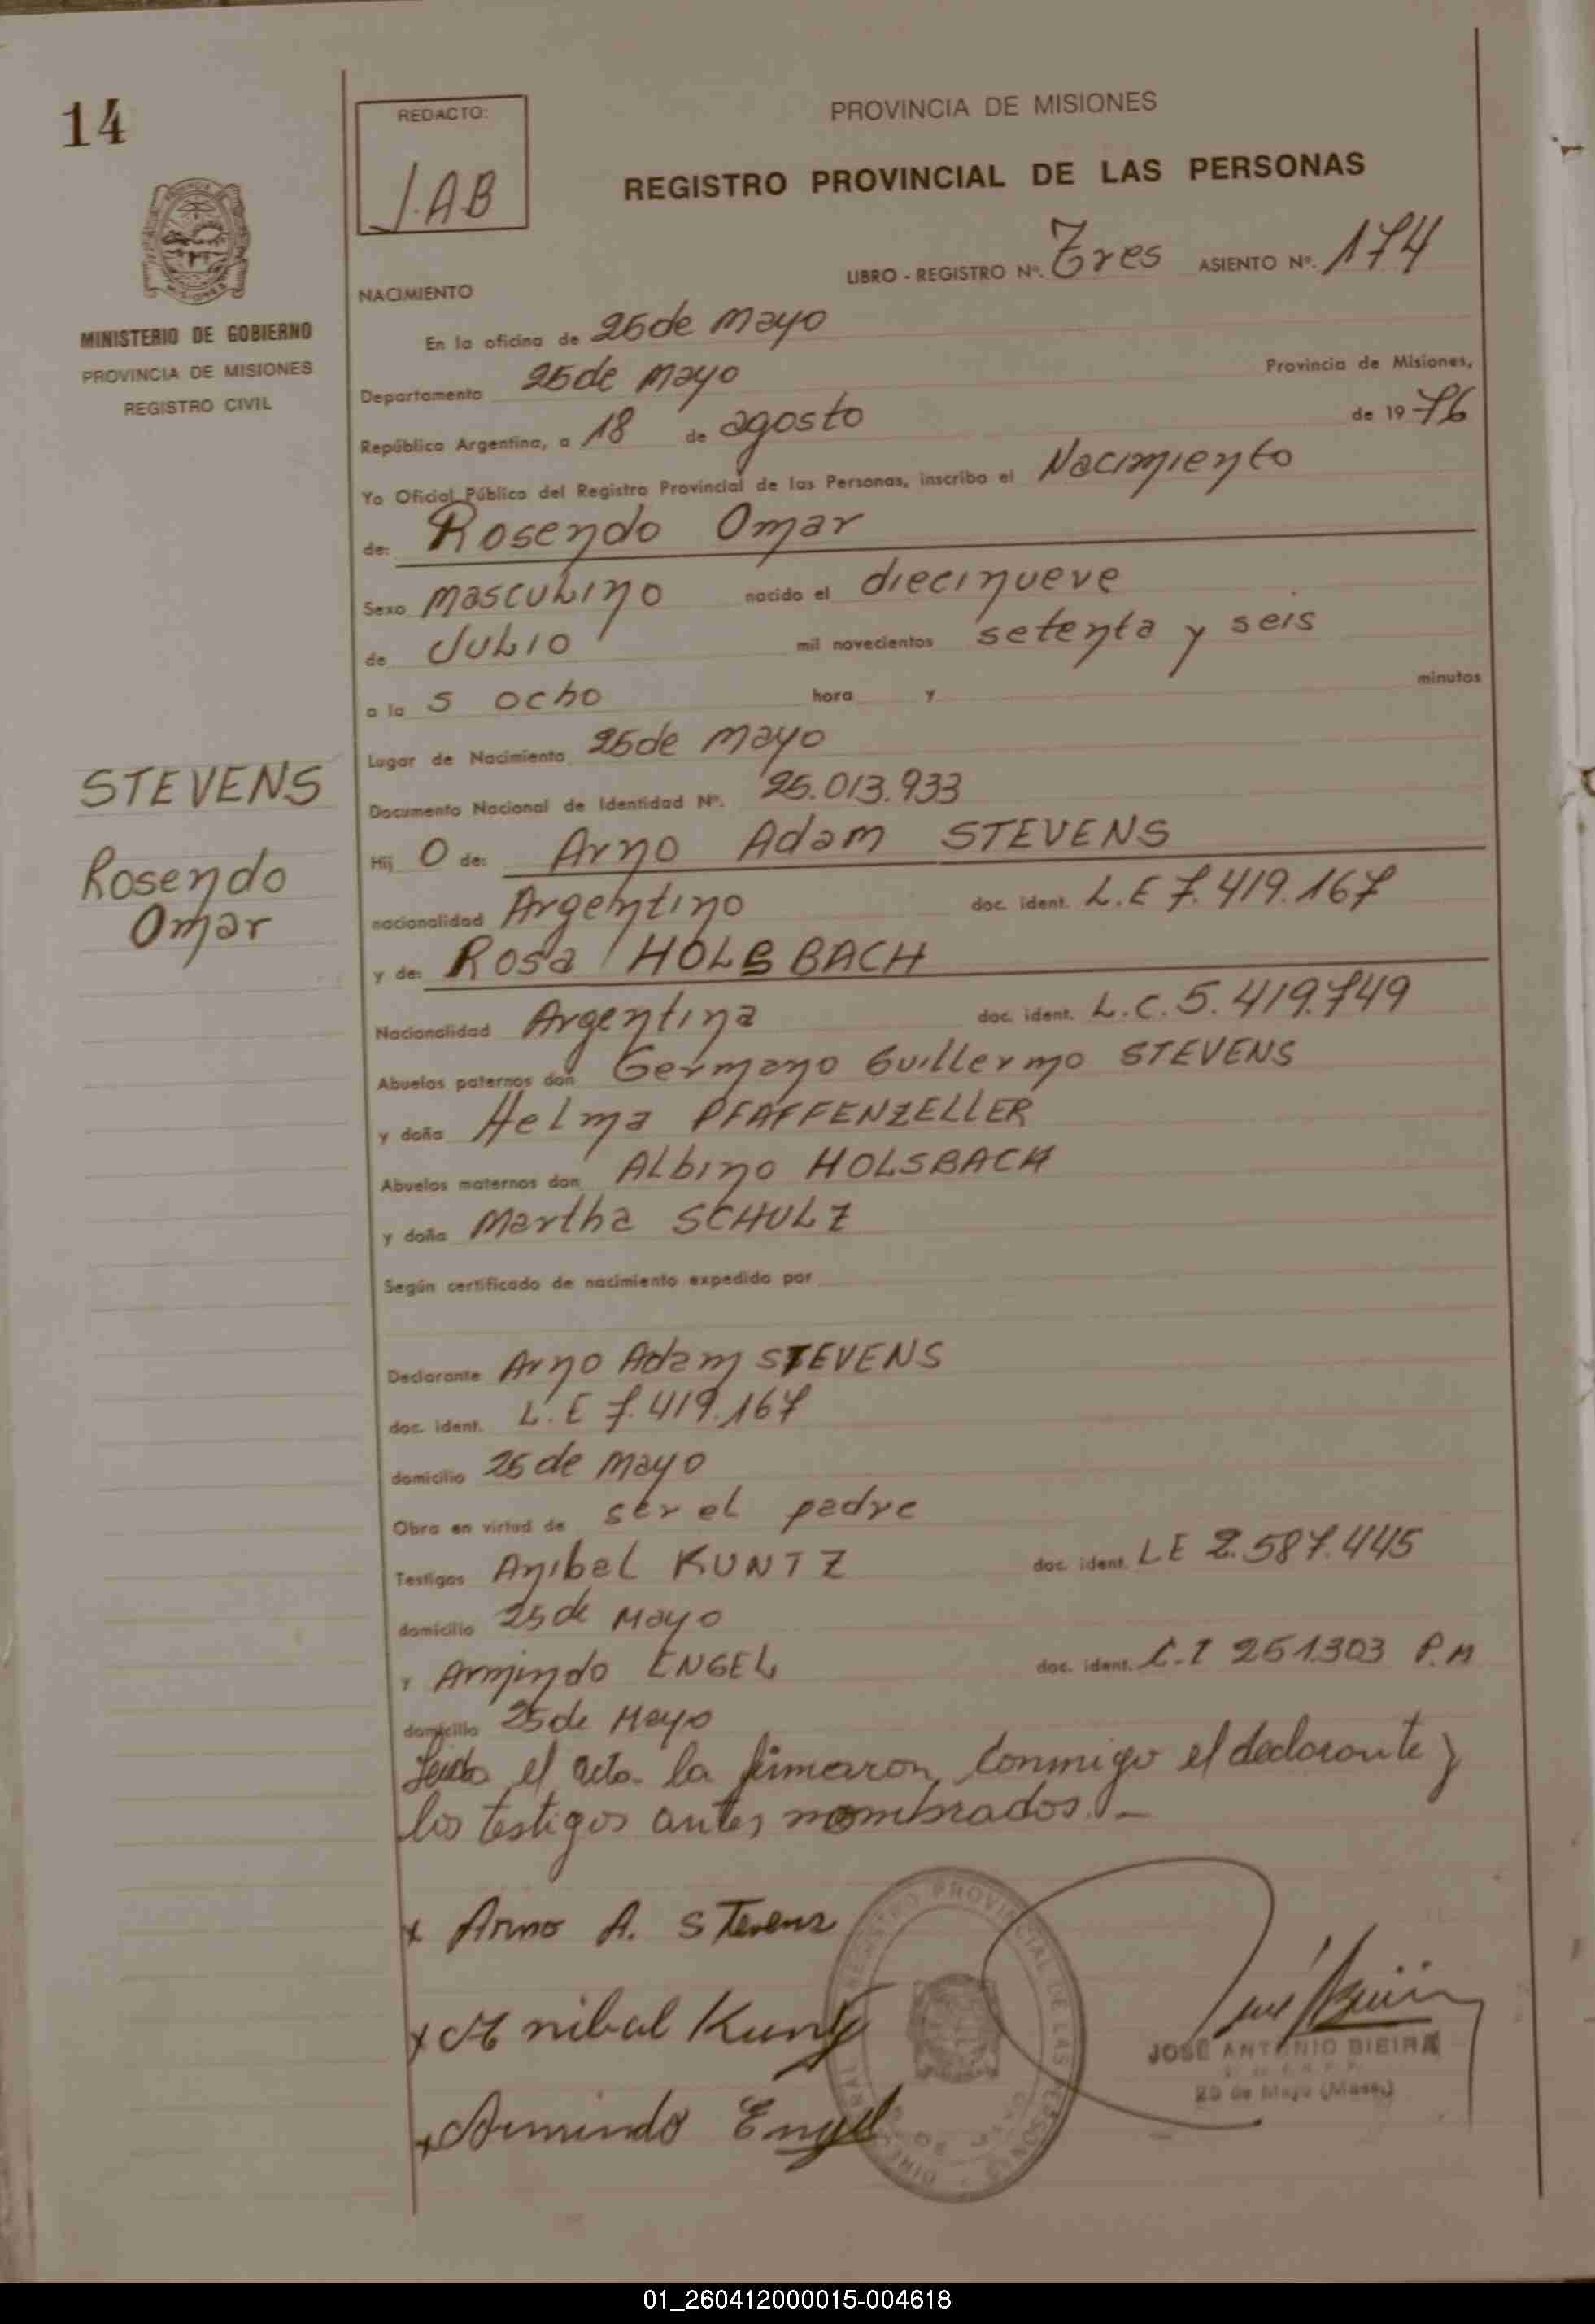 14
REDACTO:
J.A.B
PROVINCIA DE MISIONES
REGISTRO PROVINCIAL DE LAS PERSONAS
LIBRO - REGISTRO Nº. Tres ASIENTO Nº. 174
MINISTERIO DE GOBIERNO
PROVINCIA DE MISIONES
REGISTRO CIVIL
NACIMIENTO
En la oficina de 25 de Mayo
Departamento 25 de Mayo Provincia de Misiones,
República Argentina, a 18 de agosto de 1976
Yo Oficial Público del Registro Provincial de las Personas, inscribo el Nacimiento
de: Rosendo Omar
Sexo Masculino nacido el diecinueve
de Julio mil novecientos setenta y seis
a la s ocho hora y minutos
Lugar de Nacimiento 25 de Mayo
Documento Nacional de Identidad Nº. 25.013.933
STEVENS
Rosendo
Omar
Hij o de: Arno Adam STEVENS
nacionalidad Argentino doc. ident. L.E 7.419.167
y de: Rosa HOLSBACH
Nacionalidad Argentina doc. ident. L.C. 5.419.749
Abuelos paternos don Germano Guillermo STEVENS
y doña Helma PFAFFENZELLER
Abuelos maternos don Albino HOLSBACH
y doña Martha SCHULZ
Según certificado de nacimiento expedido por
Declarante Arno Adam STEVENS
doc. ident. L.E 7.419.167
domicilio 25 de Mayo
Obra en virtud de ser el padre
Testigos Anibal KUNTZ doc. ident. LE 2.587.445
domicilio 25 de Mayo
y Armindo ENGEL doc. ident. C.I 251.303 P.M
domicilio 25 de Mayo
Leida el acta la firmaron conmigo el declarante y
los testigos antes nombrados. -
x Arno A. Stevens
x Anibal Kuntz
x Armindo Engel
REGISTRO PROVINCIAL DE LAS PERSONAS
JOSE ANTONIO BIEIRA
25 de Mayo (Mnes.)
01_260412000015-004618